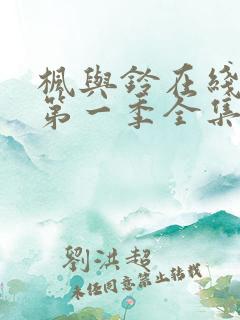 楓與鈴在綫
第一季全集
劉洪超
未經同意禁止轉載